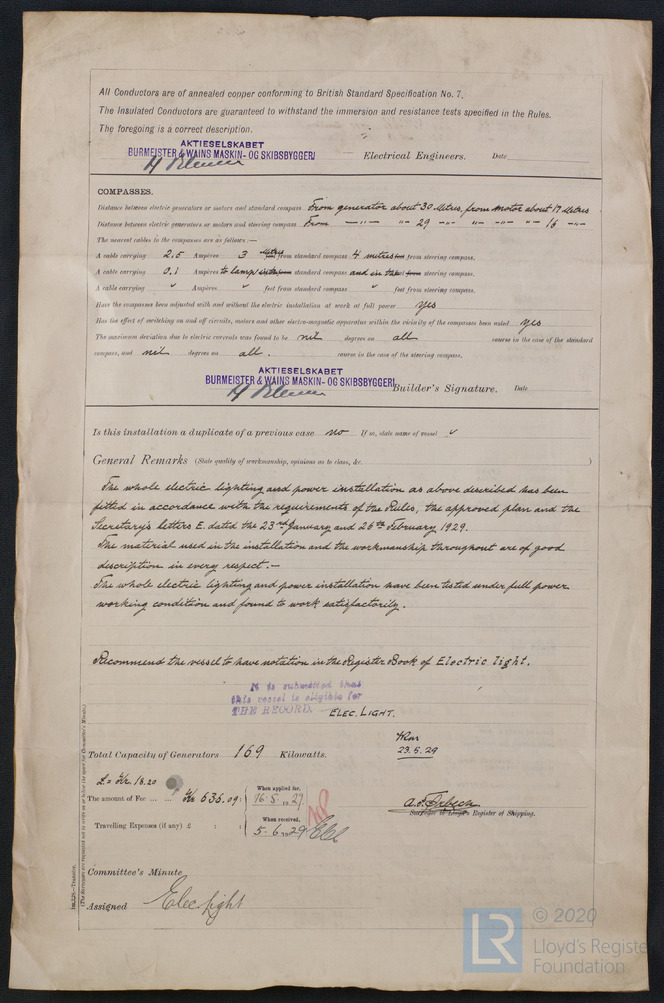 All Conductors are of annealed copper conforming to British Standard Specification No. 7.
The Insulated Conductors are guaranteed to withstand the immersion and resistance tests specified in the Rules.
The foregoing is a correct description.
AKTIESELSKABET
BURMEISTER & WAINS MASKIN- OG SKIBSBYGGERI
Electrical Engineers. Date
COMPASSES.
Distance between electric generators or motors and standard compass From generator about 30 Metres, from motor about 17 Metres
Distance between electric generators or motors and steering compass From —"— "— 29 —"— —"— —"— 16 —"—
The nearest cables to the compasses are as follows :—
A cable carrying 2.5 Ampères 3 Metres feet from standard compass 4 metres feet from steering compass.
A cable carrying 0.1 Ampères to lamp in the standard compass and in the feet from steering compass.
A cable carrying ✓ Ampères ✓ feet from standard compass ✓ feet from steering compass.
Have the compasses been adjusted with and without the electric installation at work at full power yes
Has the effect of switching on and off circuits, motors and other electro-magnetic apparatus within the vicinity of the compasses been noted yes
The maximum deviation due to electric currents was found to be nil degrees on all course in the case of the standard
compass, and nil degrees on all. course in the case of the steering compass.
AKTIESELSKABET
BURMEISTER & WAINS MASKIN- OG SKIBSBYGGERI
Builder's Signature. Date
Is this installation a duplicate of a previous case no If so, state name of vessel ✓
General Remarks (State quality of workmanship, opinions as to class, &c. )
The whole electric lighting and power installation as above described has been
fitted in accordance with the requirements of the Rules, the approved plan and the
Secretary's letters E. dated the 23rd January and 26th February 1929.
The material used in the installation and the workmanship throughout are of good
description in every respect.—
The whole electric lighting and power installation have been tested under full power
working condition and found to work satisfactorily.
Recommend the vessel to have notation in the Register Book of Electric light.
It is submitted that
this vessel is eligible for
THE RECORD. — ELEC. LIGHT.
23.5.29
Total Capacity of Generators 169 Kilowatts.
£ = Kr. 18.20
The amount of Fee ... ... Kr 535.09 :
When applied for,
16.5.1929
Travelling Expenses (if any) £ : :
When received,
5.6.1929
Surveyor to Lloyd's Register of Shipping.
Committee's Minute
Assigned Elec Light
(The Surveyors are requested not to write on or below the space for Committee's Minute.)
© 2020
LR
Lloyd's Registe
Foundation